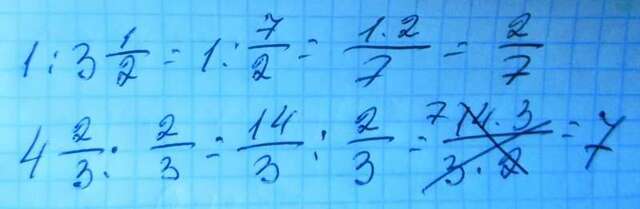 1 : 3 1/2 = 1 : 7/2 = 1·2/7 = 2/7
4 2/3 : 2/3 = 14/3 : 2/3 = 7 14·3/3·2 = 7